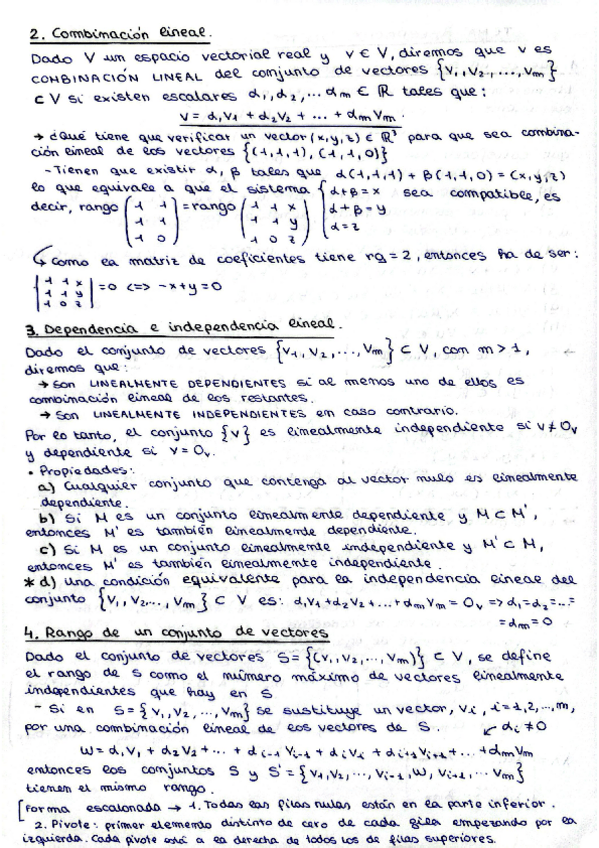 2. Combinación lineal.
Dado V un espacio vectorial real y v ∈ V, diremos que v es
COMBINACIÓN LINEAL del conjunto de vectores {v₁, v₂, ..., vₘ}
⊂ V si existen escalares α₁, α₂, ... αₘ ∈ ℝ tales que:
v = α₁v₁ + α₂v₂ + ... + αₘvₘ.
→ ¿Qué tiene que verificar un vector (x,y,z) ∈ ℝ³ para que sea combina-
ción lineal de los vectores {(1,1,1), (1,1,0)}
- Tienen que existir α, β tales que α(1,1,1) + β(1,1,0) = (x,y,z)
lo que equivale a que el sistema { α+β=x sea compatible, es
decir, rango (1 1 / 1 1 / 1 0) = rango (1 1 x / 1 1 y / 1 0 z) α+β=y
α=z
↳ Como la matriz de coeficientes tiene rg = 2, entonces ha de ser:
|1 1 x / 1 1 y / 1 0 z| = 0 <=> -x+y=0
3. Dependencia e independencia lineal.
Dado el conjunto de vectores {v₁, v₂, ..., vₘ} ⊂ V, con m > 1,
diremos que:
→ Son LINEALMENTE DEPENDIENTES si al menos uno de ellos es
combinación lineal de los restantes.
→ Son LINEALMENTE INDEPENDIENTES en caso contrario.
Por lo tanto, el conjunto {v} es linealmente independiente si v ≠ 0ᵥ
y dependiente si v = 0ᵥ.
• Propiedades:
a) Cualquier conjunto que contenga al vector nulo es linealmente
dependiente.
b) Si M es un conjunto linealmente dependiente y M ⊂ M',
entonces M' es también linealmente dependiente.
c) Si M es un conjunto linealmente independiente y M' ⊂ M,
entonces M' es también linealmente independiente.
* d) Una condición equivalente para la independencia lineal del
conjunto {v₁, v₂, ..., vₘ} ⊂ V es: α₁v₁+α₂v₂+...+αₘvₘ = 0ᵥ => α₁=α₂=...=
=αₘ=0
4. Rango de un conjunto de vectores
Dado el conjunto de vectores S = {(v₁, v₂, ..., vₘ)} ⊂ V, se define
el rango de S como el número máximo de vectores linealmente
independientes que hay en S
- Si en S = {v₁, v₂, ..., vₘ} se sustituye un vector, vᵢ, i=1,2,...,m,
por una combinación lineal de los vectores de S. ↙ αᵢ ≠ 0
W = α₁v₁ + α₂v₂ + ... + αᵢ₋₁vᵢ₋₁ + αᵢvᵢ + αᵢ₊₁vᵢ₊₁ + ... + αₘvₘ
entonces los conjuntos S y S' = {v₁, v₂, ..., vᵢ₋₁, W, vᵢ₊₁, ... vₘ}
tienen el mismo rango.
[Forma escalonada → 1. Todas las filas nulas están en la parte inferior.
2. Pivote: primer elemento distinto de cero de cada fila empezando por la
izquierda. Cada pivote está a la derecha de todos los de filas superiores.